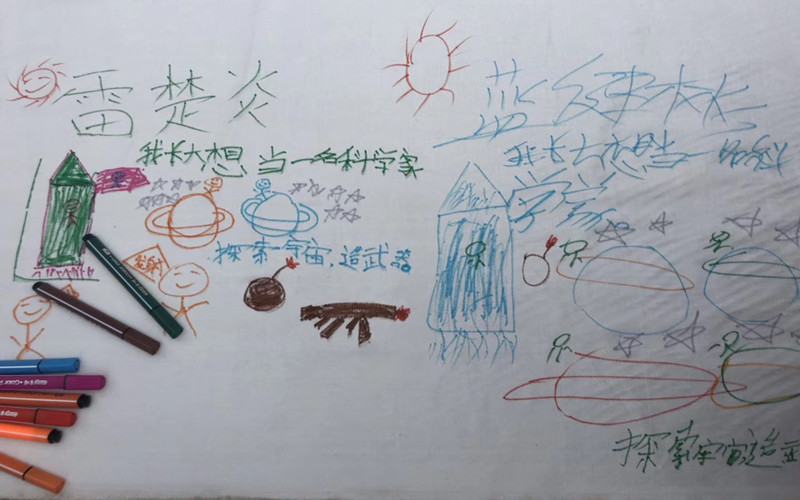 雷楚炎
我长大想当一名科学家
探索宇宙,造武器
发射
蓝
我长大想当一名科
学家
探索宇宙造武